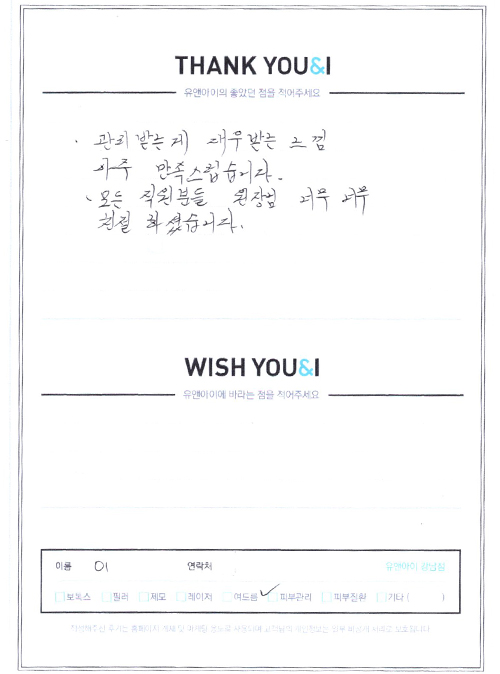 THANK YOU&I
유앤아이의 좋았던 점을 적어주세요
· 관리 받는게 대우받는 느낌
아주 만족스럽습니다.
· 모든 직원분들 원장님 너무 너무
친절 하셨습니다.
WISH YOU&I
유앤아이에 바라는 점을 적어주세요
이름 이 연락처 유앤아이 강남점
보톡스 필러 제모 레이저 여드름 피부관리 피부질환 기타 ( )